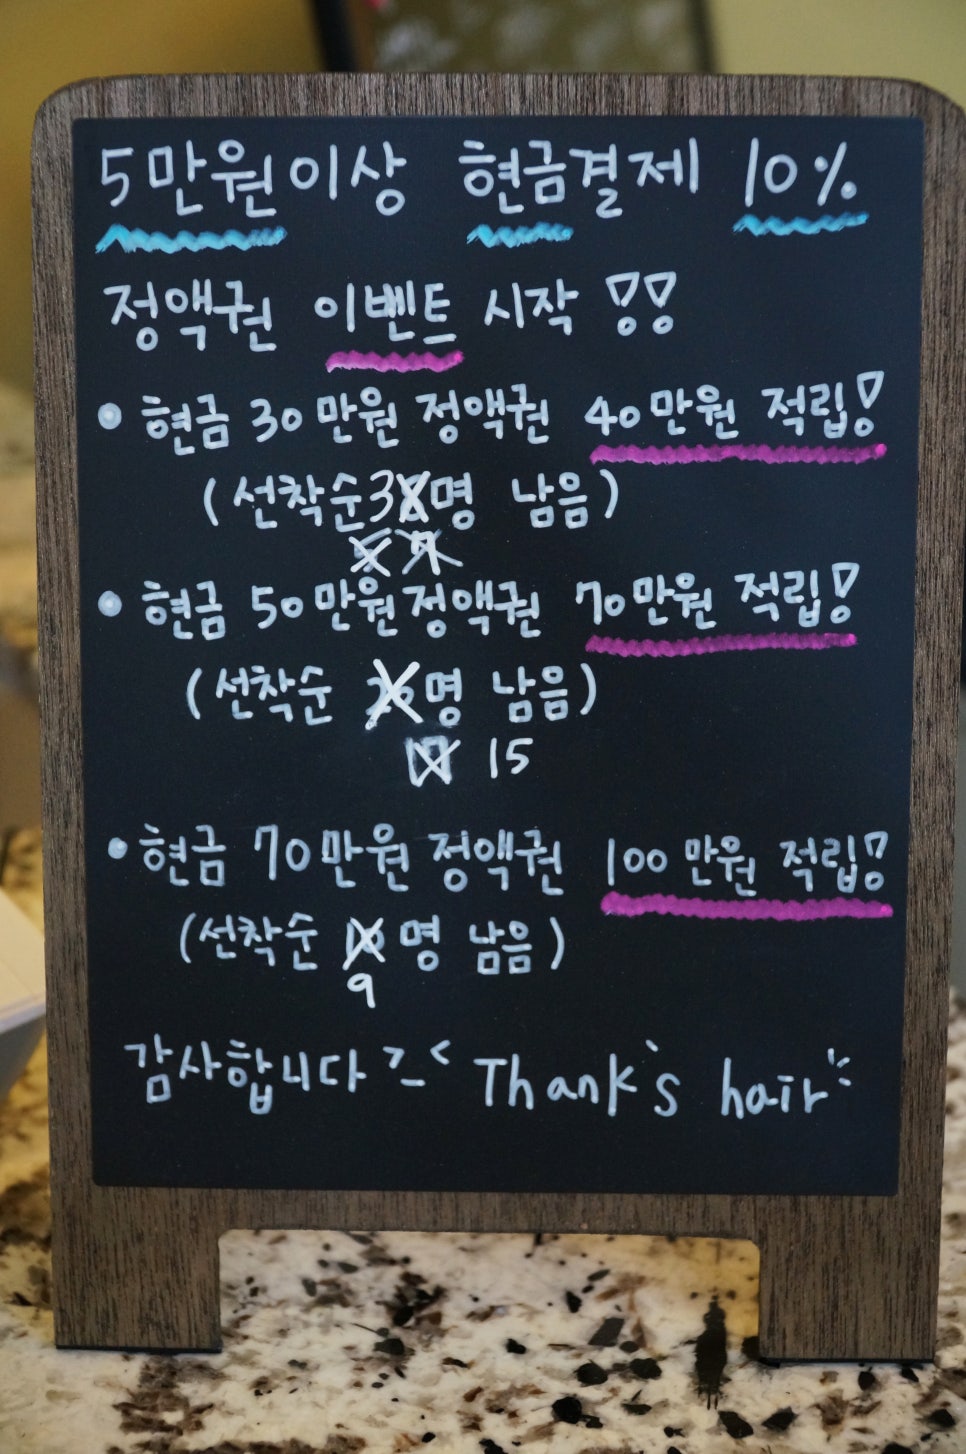 5만원이상 현금결제 10%
정액권 이벤트 시작!!
• 현금 30만원 정액권 40만원 적립!
(선착순 3명 남음)
• 현금 50만원 정액권 70만원 적립!
(선착순 명 남음)
15
• 현금 70만원 정액권 100만원 적립!
(선착순 10 명 남음)
9
감사합니다 >_< Thank's hair"